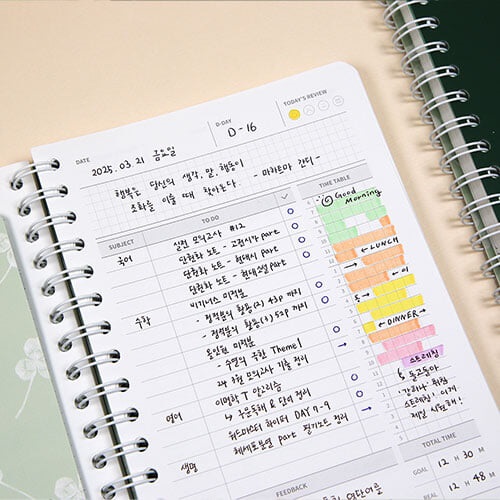 TODAY'S REVIEW
D-DAY
D-16
DATE
2025.03 21 금요일
행복은 당신의 생각, 말, 행동이
조화를 이룰 때 찾아온다. - 마하트마 간디 -
TO DO
SUBJECT
국어
실전 모의고사 #12
단권화 노트 - 고전시가 part
단권화 노트 - 현대시 part
단권화 노트 - 현대소설 part
수학
미적분
- 정적분의 활용(2) 43p 까지
- 정적분의 활용(3) 52p 까지
미적분
- 수열의 극한 Theme 1
3월 모의고사 기출 정리
영어
이명학 T
구문독해 & 단어 정리
워드마스터 하이퍼 DAY 7-9
생명
체세포분열 part 필기노트 정리
FEEDBACK
TIME TABLE
Good
Morning
← LUNCH
→
← DINNER →
스트레칭
돌고돌아
스트레칭! 이게
제일 시원해!
TOTAL TIME
GOAL 12 H 30 M
12 H 48 M